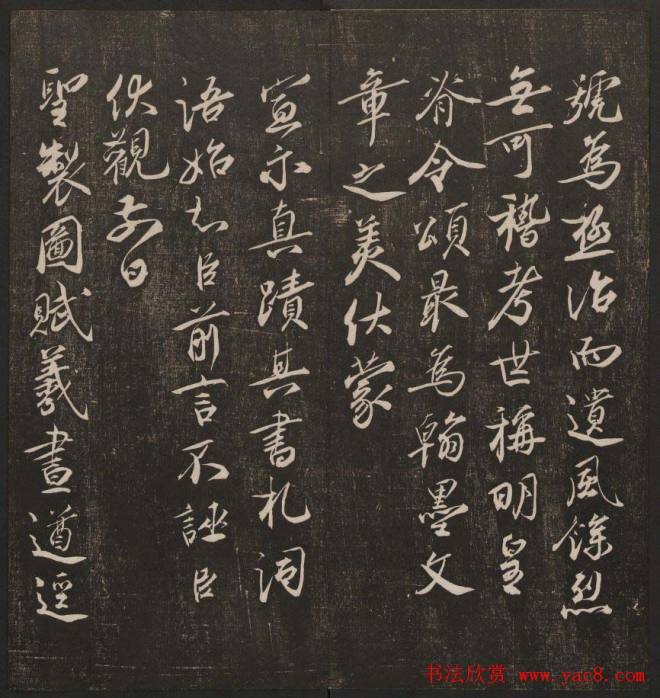 號為極治而遺風餘烈
無可稽考世稱明皇
脊令頌最為翰墨文
章之美伏蒙
宣示真蹟其書札詞
語始知臣前言不誣臣
伏觀前日
聖製圖賦羲畫遒逕
书法欣赏 www.yac8.com